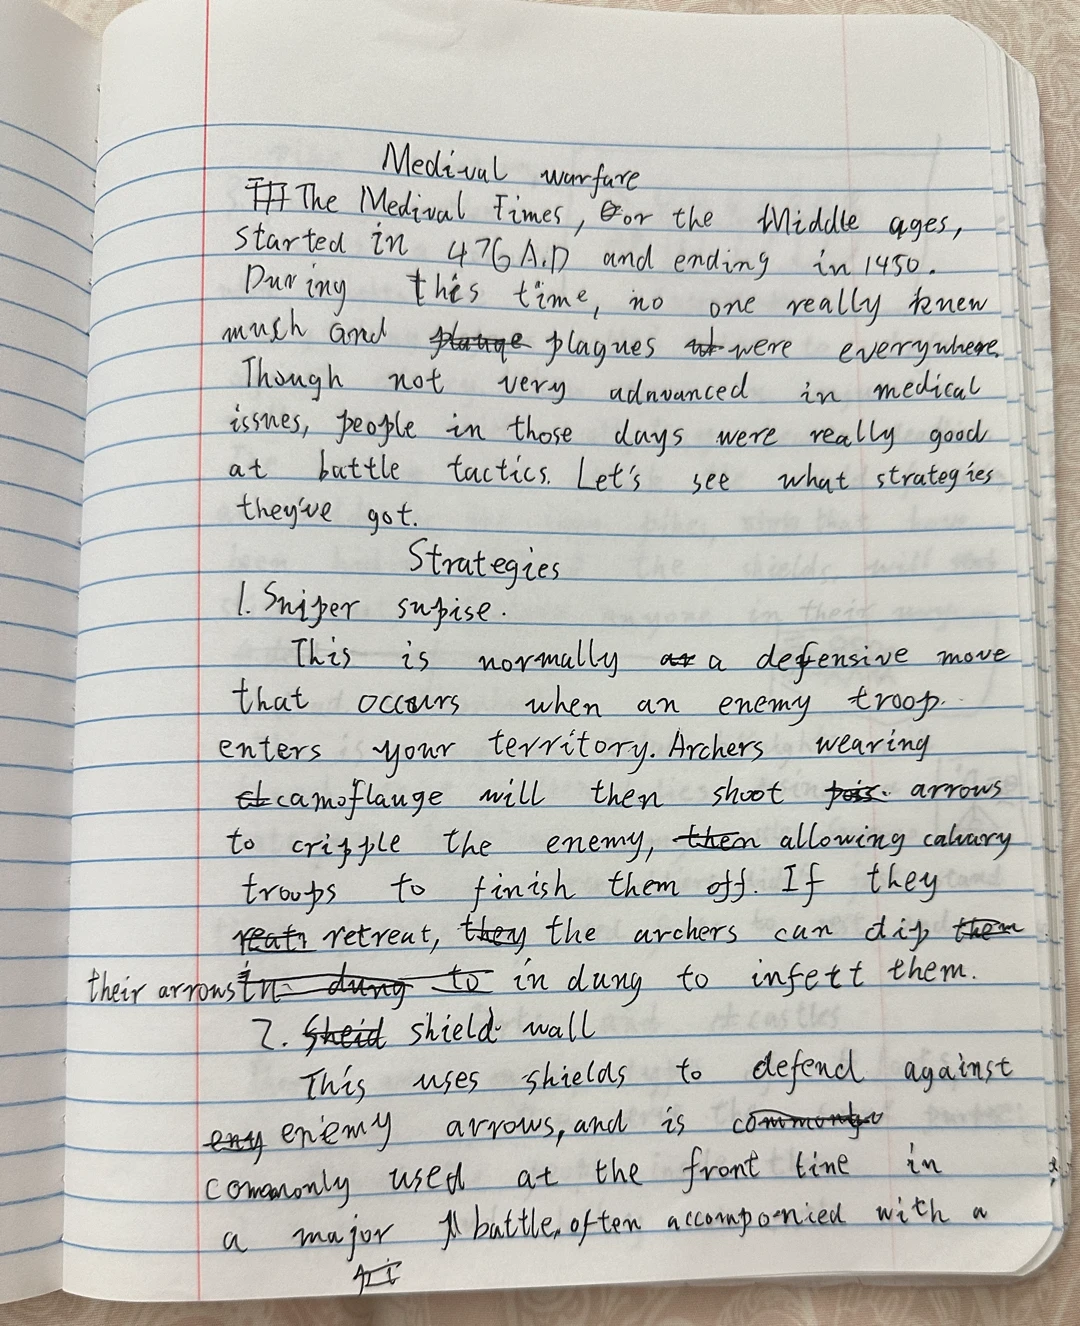 Medival warfare
The Medival Times, or the Middle ages,
started in 476 A.D and ending in 1450.
During this time, no one really knew
much and plagues were everywhere.
Though not very adnvanced in medical
issues, people in those days were really good
at battle tactics. Let's see what strategies
they've got.
Strategies
1. Sniper supise.
This is normally a defensive move
that occurs when an enemy troop
enters your territory. Archers wearing
camoflauge will then shoot arrows
to cripple the enemy, allowing calvary
troops to finish them off. If they
retreat, the archers can dip
their arrows in dung to infect them.
2. shield wall
This uses shields to defend against
enemy arrows, and is
commonly used at the front line in
a major battle, often accomponied with a